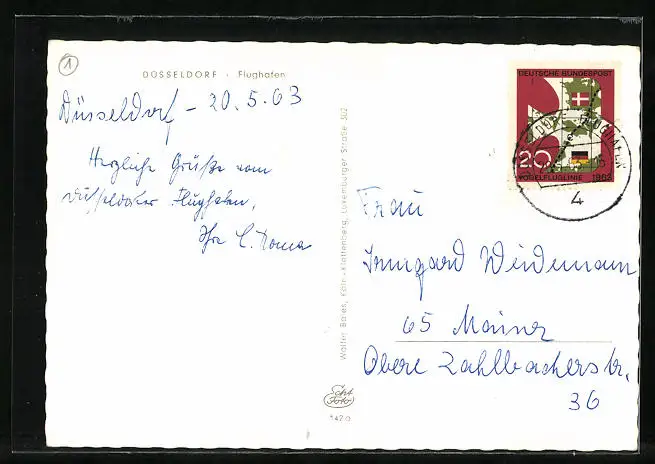 1
DÜSSELDORF · Flughafen
Düsseldorf - 20.5.63
Herzliche Grüße vom
Düsseldorfer Flughafen,
Ihr C.
Walter Baies, Köln-Klettenberg, Luxemburger Straße 302
Echt
Foto
DEUTSCHE BUNDESPOST
20
VOGELFLUGLINIE 1963
FLUGHAFEN
4
Frau
Irmgard Weidemann
65 Mainz
Obere Zahlbacherstr.
36